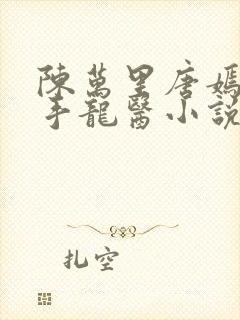 陳萬里唐嫣
手龍醫小說
扎空